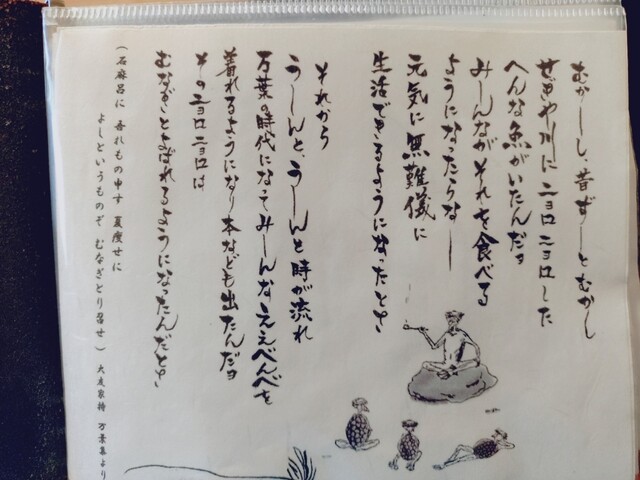 むかーしし、昔ずーとむかし
せぎや川にニョロニョロした
へんな魚がいたんだョ
みーんながそれを食べる
ようになったらなー
元気に無難儀に
生活できるようになったとさ
それから
うーしんと、うーしんと時が流れ
万葉の時代になてみーんなええべんべを
着れるようになり本なども出たんだョ
そのニョロニョロは
むなぎとよばれるようになったんだとさ
（石麻呂に 吾れもの申す 夏痩せに
よしというものぞ むなぎとり召せ） 大友家持 万葉集より